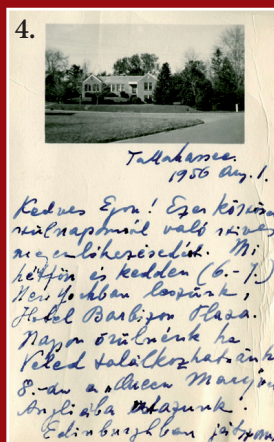 4.
Tallahassee.
1956 Aug. 1.
Kedves Egon! Ezer köszönet
szülnapomról való szíves
megemlékezésedért. Mi
hétfőn és kedden (6.-7.)
New Yorkban leszünk,
Hotel Barbizon Plaza.
Nagyon örülnénk ha
Veled találkozhatnánk
8.-án a „Queen Mary"n
Angliába utazunk.
Edinburghban játszom